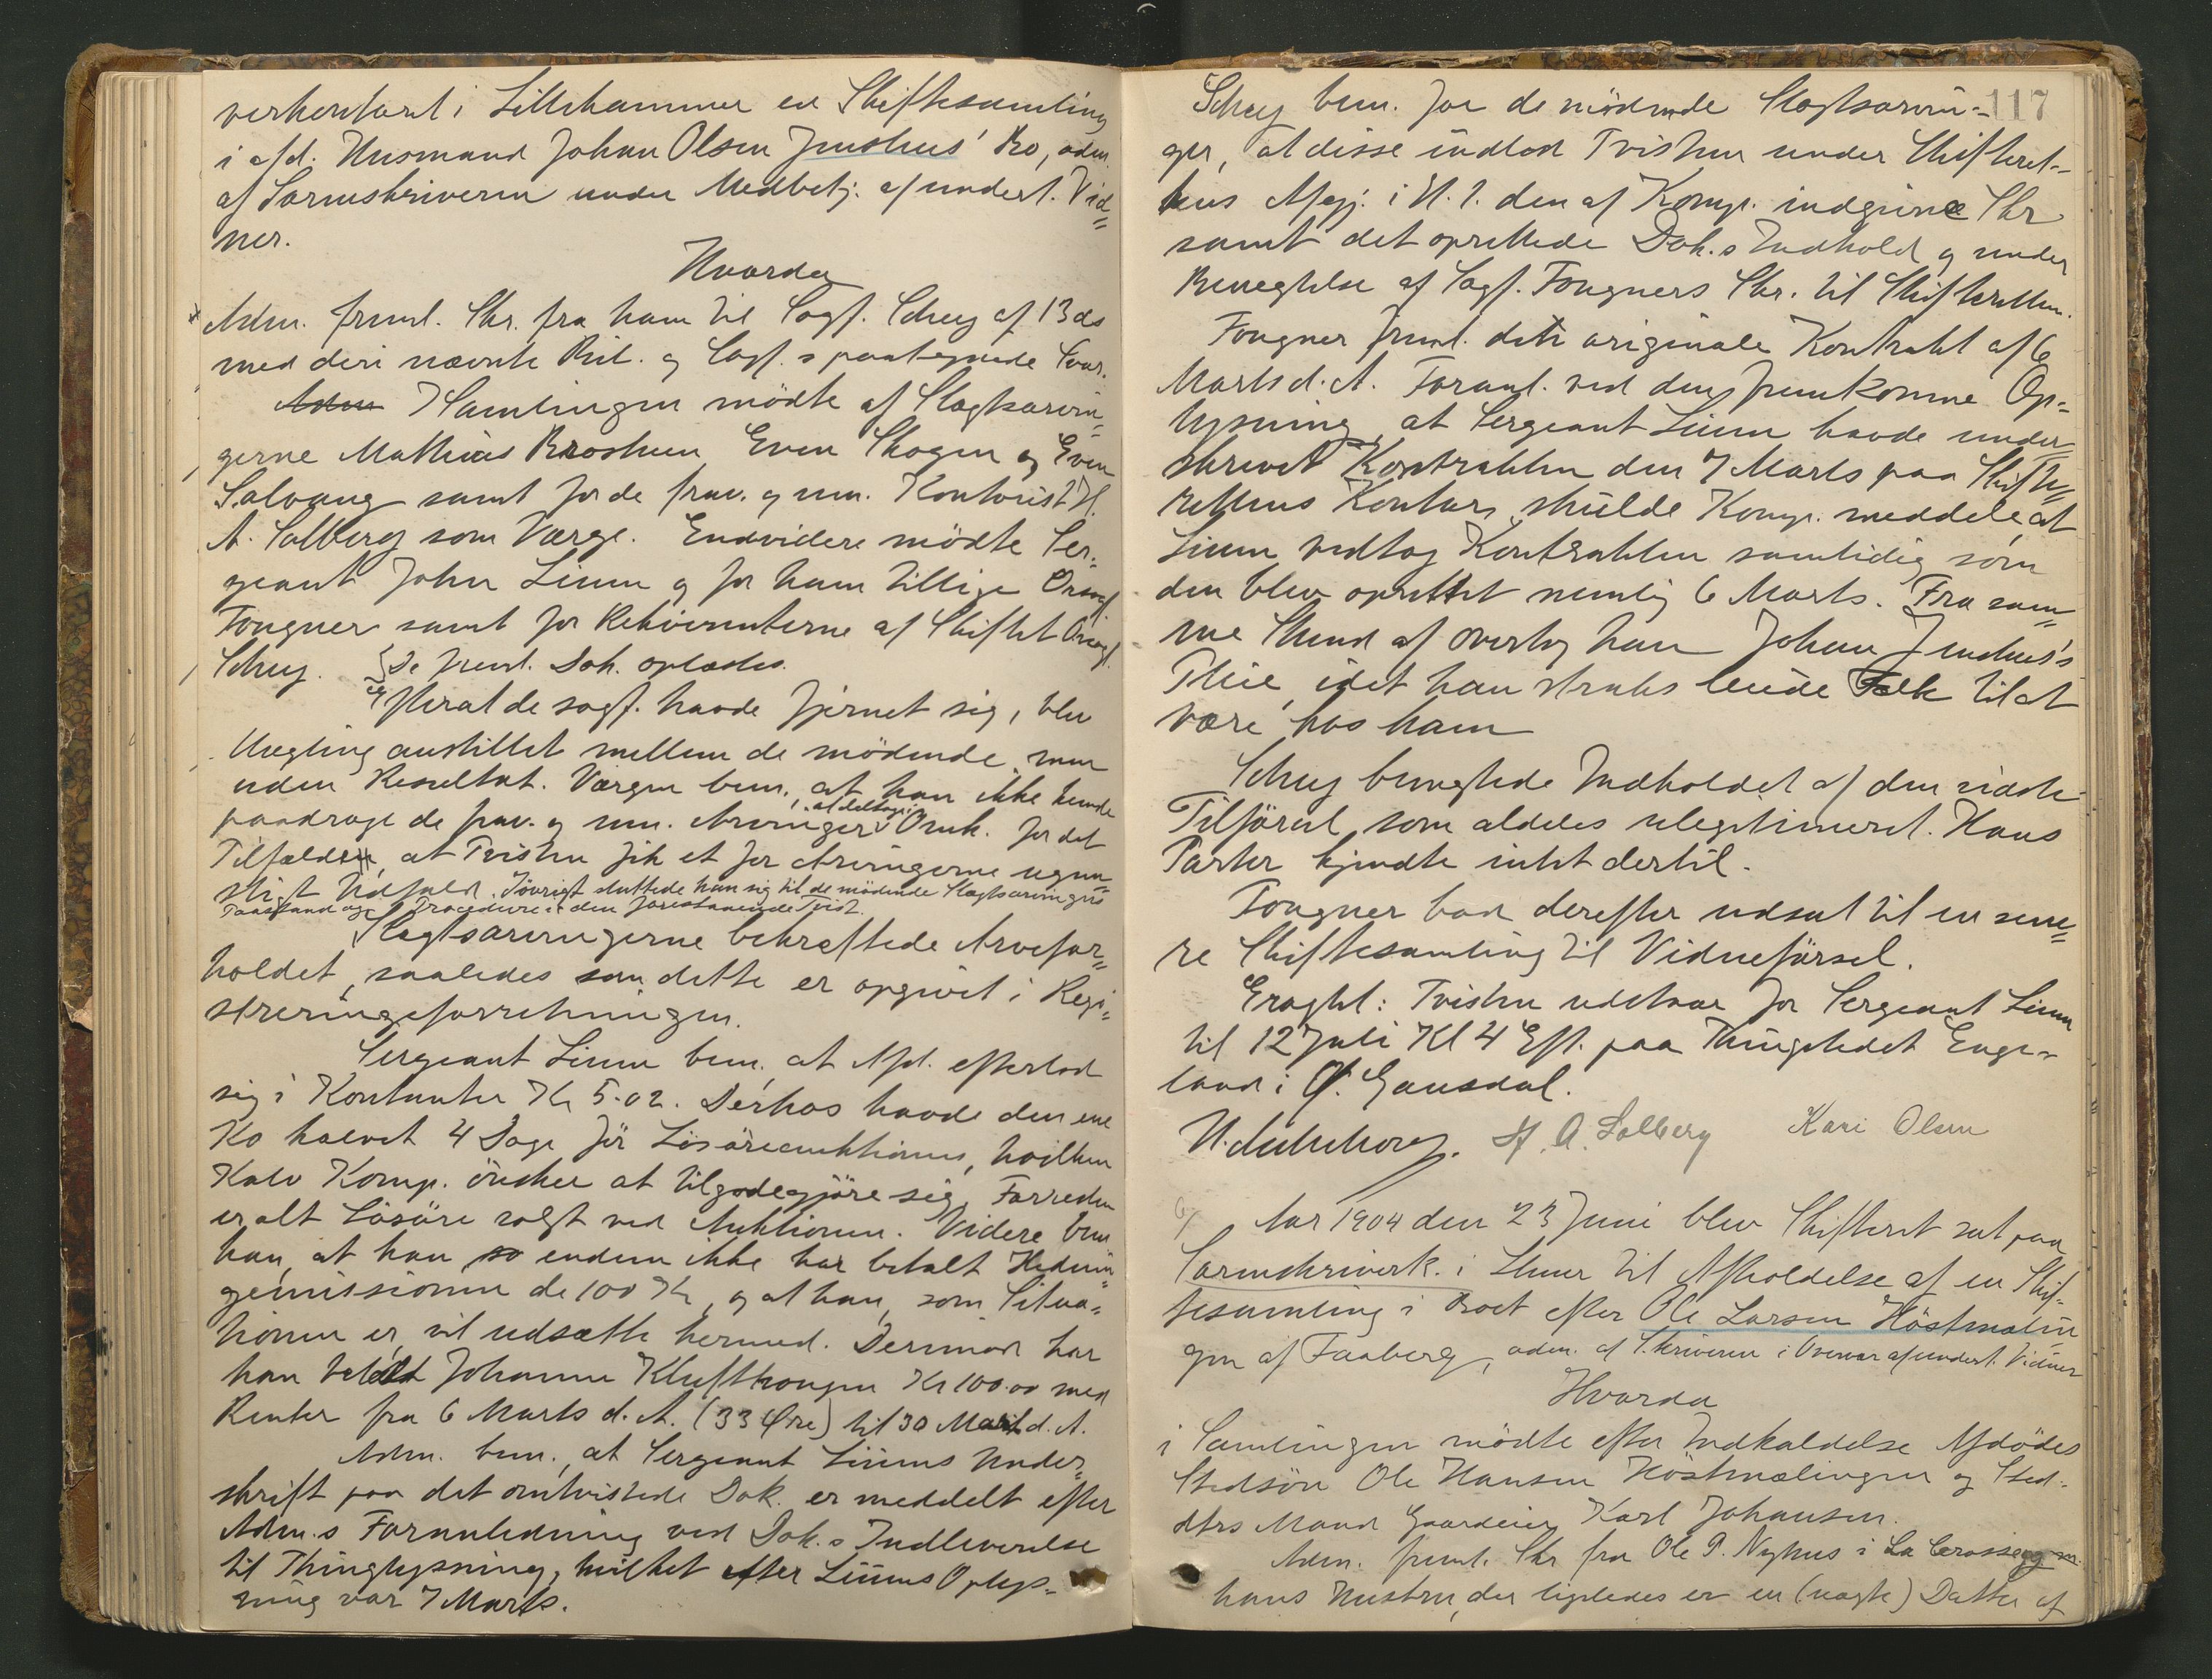 verkontort i Lillehammer en Skiftesamling
i afd. Husmand Johan Olsen Jnshus' Bo, adm.
af Sorenskriveren under Medbetj. af undert. Vid=
ner.
Hvorda
Adm. freml. Skr. fra ham til Sagf. Schey af 13 ds
med deri nævnte Bil. og Sagf.s paategnede Svar.
I Samlingen mödte af Slagtsarvin=
gerne Mathias Brostuen, Even Skogen og Even
Solvang samt for de frav. og um. Kontorist H.
A. Solberg som Værge. Endvidere mödte Ser=
geant John Linn og for ham tillige Orsagf.
Fougner samt for Rekvirenterne af Skiftet Orsagf.
Schey. De freml. Dok. oplæstes.
Efterat de sagf. havde fjernet sig, blev
Mægling anstillet mellem de mödende, men
uden Resultat. Værgen bem., at han ikke kunde
paadrage de frav. og um. Arvinger at deltage i Omk. for det
Tilfælde, at Tvisten fik et for Arvingerne ugun=
stigt Udfald. Iövrigt sluttede han sig til de mödende Slagtsarvingers
Paastand og Procedure i den foreliggende Tvist.
Slagtsarvingerne bekræftede Arvefor=
holdet, saaledes som dette er opgivet i Regi=
streringsforretningen.
Sergeant Linn bem., at Afd. efterlod
sig i Kontanter Kr 5.02. Derhos havde den ene
Ko kalvet 4 Dage för Lösöreauktionen, hvilken
Kalv Komp. önsker at tilgodegjöre sig. Forresten
er alt Lösöre solgt ved Auktionen. Videre bem.
han, at han endnu ikke har betalt Hednin=
gemissionen de 100 Kr, og at han, som Situa=
tionen er, vil udsætte hermed. Derimod har
han betalt Johanne Kluftkongen Kr 100.00 med
Renter fra 6 Marts d. A. (33 Øre) til 30 Marts d. A.
Adm. bem., at Sergeant Linns Under=
skrift paa det omtvistede Dok. er meddelt efter
Adm.s Foranledning ved Dok.s Indleverelse
til Thinglysning, hvilket efter Linns Oplys=
ning var 7 Marts.
117
Schey bem. for de mödende Slagtsarvin=
ger, at disse indlod Tvisten under Skifteret=
tens Afgj. i H. t. den af Komp. indgivne Skr
samt det oprettede Dok.s Indhold og under
Benegtelse af Sagf. Fougners Skr. til Skifteretten.
Fougner freml. den originale Kontrakt af 6
Marts d. A. Foranl. ved den fremkomne Op=
lysning, at Sergeant Linn havde under=
skrevet Kontrakten den 7 Marts paa Skifte=
rettens Kontor, skulde Komp. meddele, at
Linn vedtog Kontrakten samtidig som
den blev oprettet nemlig 6 Marts. Fra sam=
me Stund af overtog han Johan Jnshus's
Pleie, idet han straks leiede Folk til at
være hos ham
Schey benegtede Indholdet af den sidste
Tilförsel, som aldeles ulegitimeret. Hans
Parter kjendte intet dertil.
Fougner bad derefter udsat til en sene=
re Skiftesamling til Vidneförsel.
Eragtet: Tvisten udstaar for Sergeant Linn
til 12 Juli Kl 4 Eft. paa Thingstedet Enge=
land i Ø. Gausdal.
H. A. Solberg Kari Olsen
6) Aar 1904 den 23 Juni blev Skifteret sat paa
Sorenskriverk. i Lhmer til Afholdelse af en Skif=
tesamling i Boet efter Ole Larsen Höstmælin
gen af Faaberg, adm. af S.kriveren i Overvær af undert. Vidner
Hvorda
i Samlingen mödte efter Indkaldelse Afdödes
Stedsön Ole Hansen Höstmælingen og Sted=
dtrs Mand Gaardeier Karl Johansen.
Adm. freml. Skr fra Ole P. Nyhus i La Crosse og m.
hans Hustru, der ligeledes er en (uægte) Datter af